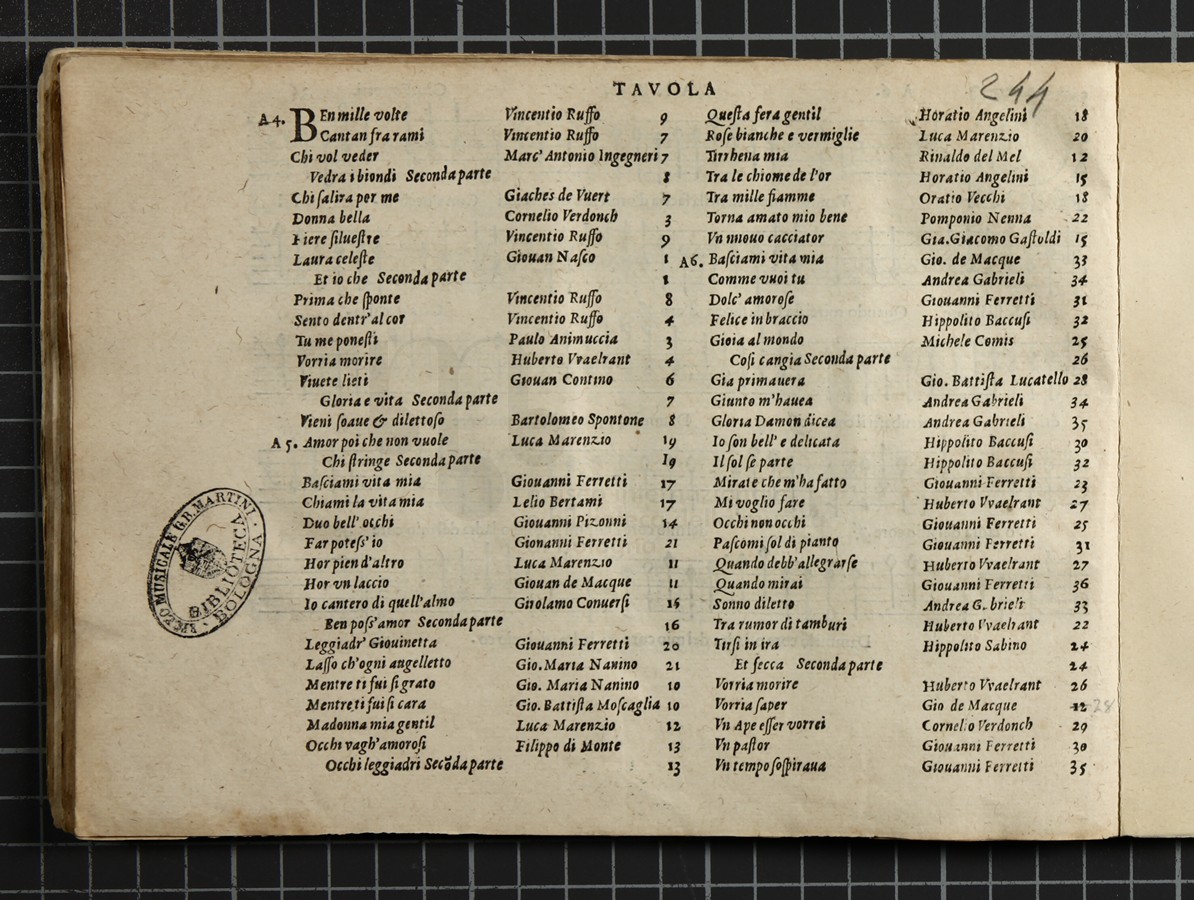 TAVOLA
244
A4. BEn mille volte Vincentio Ruffo 9
Cantan fra rami Vincentio Ruffo 7
Chi vol veder Marc' Antonio Ingegneri 7
Vedra i biondi Seconda parte 8
Chi ſalira per me Giaches de Vuert 7
Donna bella Cornelio Verdonch 3
Fiere ſilueſtre Vincentio Ruffo 9
Laura celeſte Giouan Naſco 1
Et io che Seconda parte 1
Prima che ſponte Vincentio Ruffo 8
Sento dentr' al cor Vincentio Ruffo 4
Tu me poneſti Paulo Animuccia 3
Vorria morire Huberto Vvaelrant 4
Viuete lieti Giouan Contino 6
Gloria e vita Seconda parte 7
Vieni ſoaue & dilettoſo Bartolomeo Spontone 8
A 5. Amor poi che non vuole Luca Marenzio 19
Chi ſtringe Seconda parte 19
Baſciami vita mia Giouanni Ferretti 17
Chiami la vita mia Lelio Bertami 17
Duo bell' occhi Giouanni Pizonni 14
Far poteſs' io Gionanni Ferretti 21
Hor pien d'altro Luca Marenzio 11
Hor vn laccio Giouan de Macque 11
Io cantero di quell'almo Girolamo Conuerſi 15
Ben poſs'amor Seconda parte 16
Leggiadr' Giouinetta Giouanni Ferretti 20
Laſſo ch'ogni augelletto Gio. Maria Nanino 21
Mentre ti fui ſi grato Gio. Maria Nanino 10
Mentre ti fui ſi cara Gio. Battiſta Moſcaglia 10
Madonna mia gentil Luca Marenzio 12
Occhi vagh'amoroſi Filippo di Monte 13
Occhi leggiadri Secōda parte 13
Queſta fera gentil Horatio Angelini 18
Roſe bianche e vermiglie Luca Marenzio 20
Tirrhena mia Rinaldo del Mel 12
Tra le chiome de l'or Horatio Angelini 15
Tra mille fiamme Oratio Vecchi 18
Torna amato mio bene Pomponio Nenna 22
Vn nuouo cacciator Gia. Giacomo Gaſtoldi 15
A6. Baſciami vita mia Gio. de Macque 33
Comme vuoi tu Andrea Gabrieli 34
Dolc' amoroſe Giouanni Ferretti 31
Felice in braccio Hippolito Baccuſi 32
Gioia al mondo Michele Comis 25
Coſi cangia Seconda parte 26
Gia primauera Gio. Battiſta Lucatello 28
Giunto m'hauea Andrea Gabrieli 34
Gloria Damon dicea Andrea Gabrieli 35
Io ſon bell' e delicata Hippolito Baccuſi 30
Il ſol ſe parte Hippolito Baccuſi 32
Mirate che m'ha fatto Giouanni Ferretti 23
Mi voglio fare Huberto Vvaelrant 27
Occhi non occhi Giouanni Ferretti 25
Paſcomi ſol di pianto Giouanni Ferretti 31
Quando debb' allegrarſe Huberto Vvaelrant 27
Quando mirai Giouanni Ferretti 36
Sonno diletto Andrea Gabrieli 33
Tra rumor di tamburi Huberto Vvaelrant 22
Tirſi in ira Hippolito Sabino 24
Et ſecca Seconda parte 24
Vorria morire Huberto Vvaelrant 26
Vorria ſaper Gio de Macque 12 28
Vn Ape eſſer vorrei Cornelio Verdonch 29
Vn paſtor Giouanni Ferretti 30
Vn tempo ſoſpiraua Giouanni Ferretti 35
MUSICALE G.B. MARTINI
BIBLIOTECA
BOLOGNA